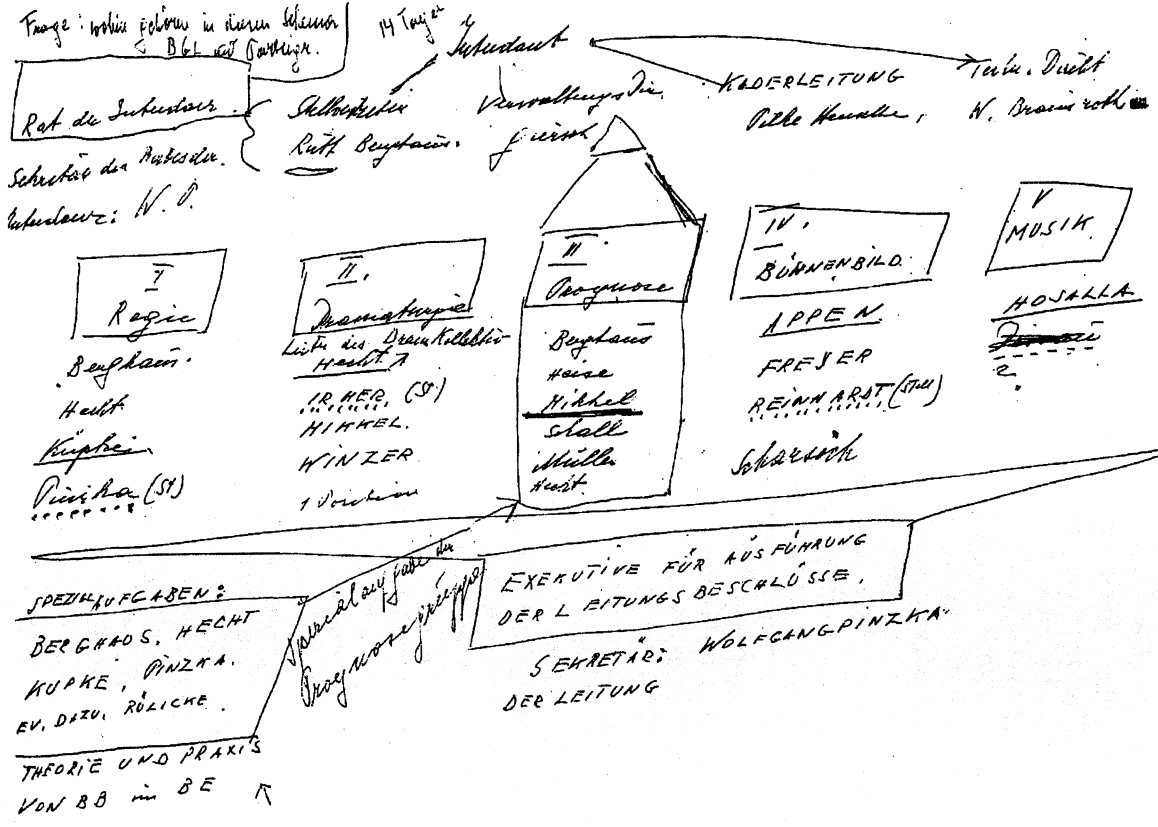 Frage: wohin gehören in diesem Schema
BGL und Parteigr.
14 Tage
Intendant
Rat der Intendanz
Stellvertreterin
Ruth Berghaus.
Verwaltungsdir.
Giersch
KADERLEITUNG
Pilke
Techn. Direkt
W. Braunroth
Sekretär des Rates der
Intendanz: W. P.
I
Regie
Berghaus.
Hecht
Küpke
Pinzka (St)
II.
Dramaturgie
Leiter des Dram Kollektiv
Hecht
(St)
MIKKEL.
WINZER
1
III.
Prognose
Berghaus
Heise
Mikkel
Schall
Müller
Hecht.
IV.
BÜHNENBILD.
APPEN
FREYER
REINHARDT (Stell)
V
MUSIK.
HOSALLA
?
SPEZIALAUFGABEN:
BERGHAUS, HECHT
KUPKE, PINZKA.
EV. DAZU. RÜLICKE.
THEORIE UND PRAXIS
VON BB im BE
Spezialaufgabe der
Prognosegruppe
EXEKUTIVE FÜR AUSFÜHRUNG
DER LEITUNGSBESCHLÜSSE.
SEKRETÄR: WOLFGANG PINZKA.
DER LEITUNG